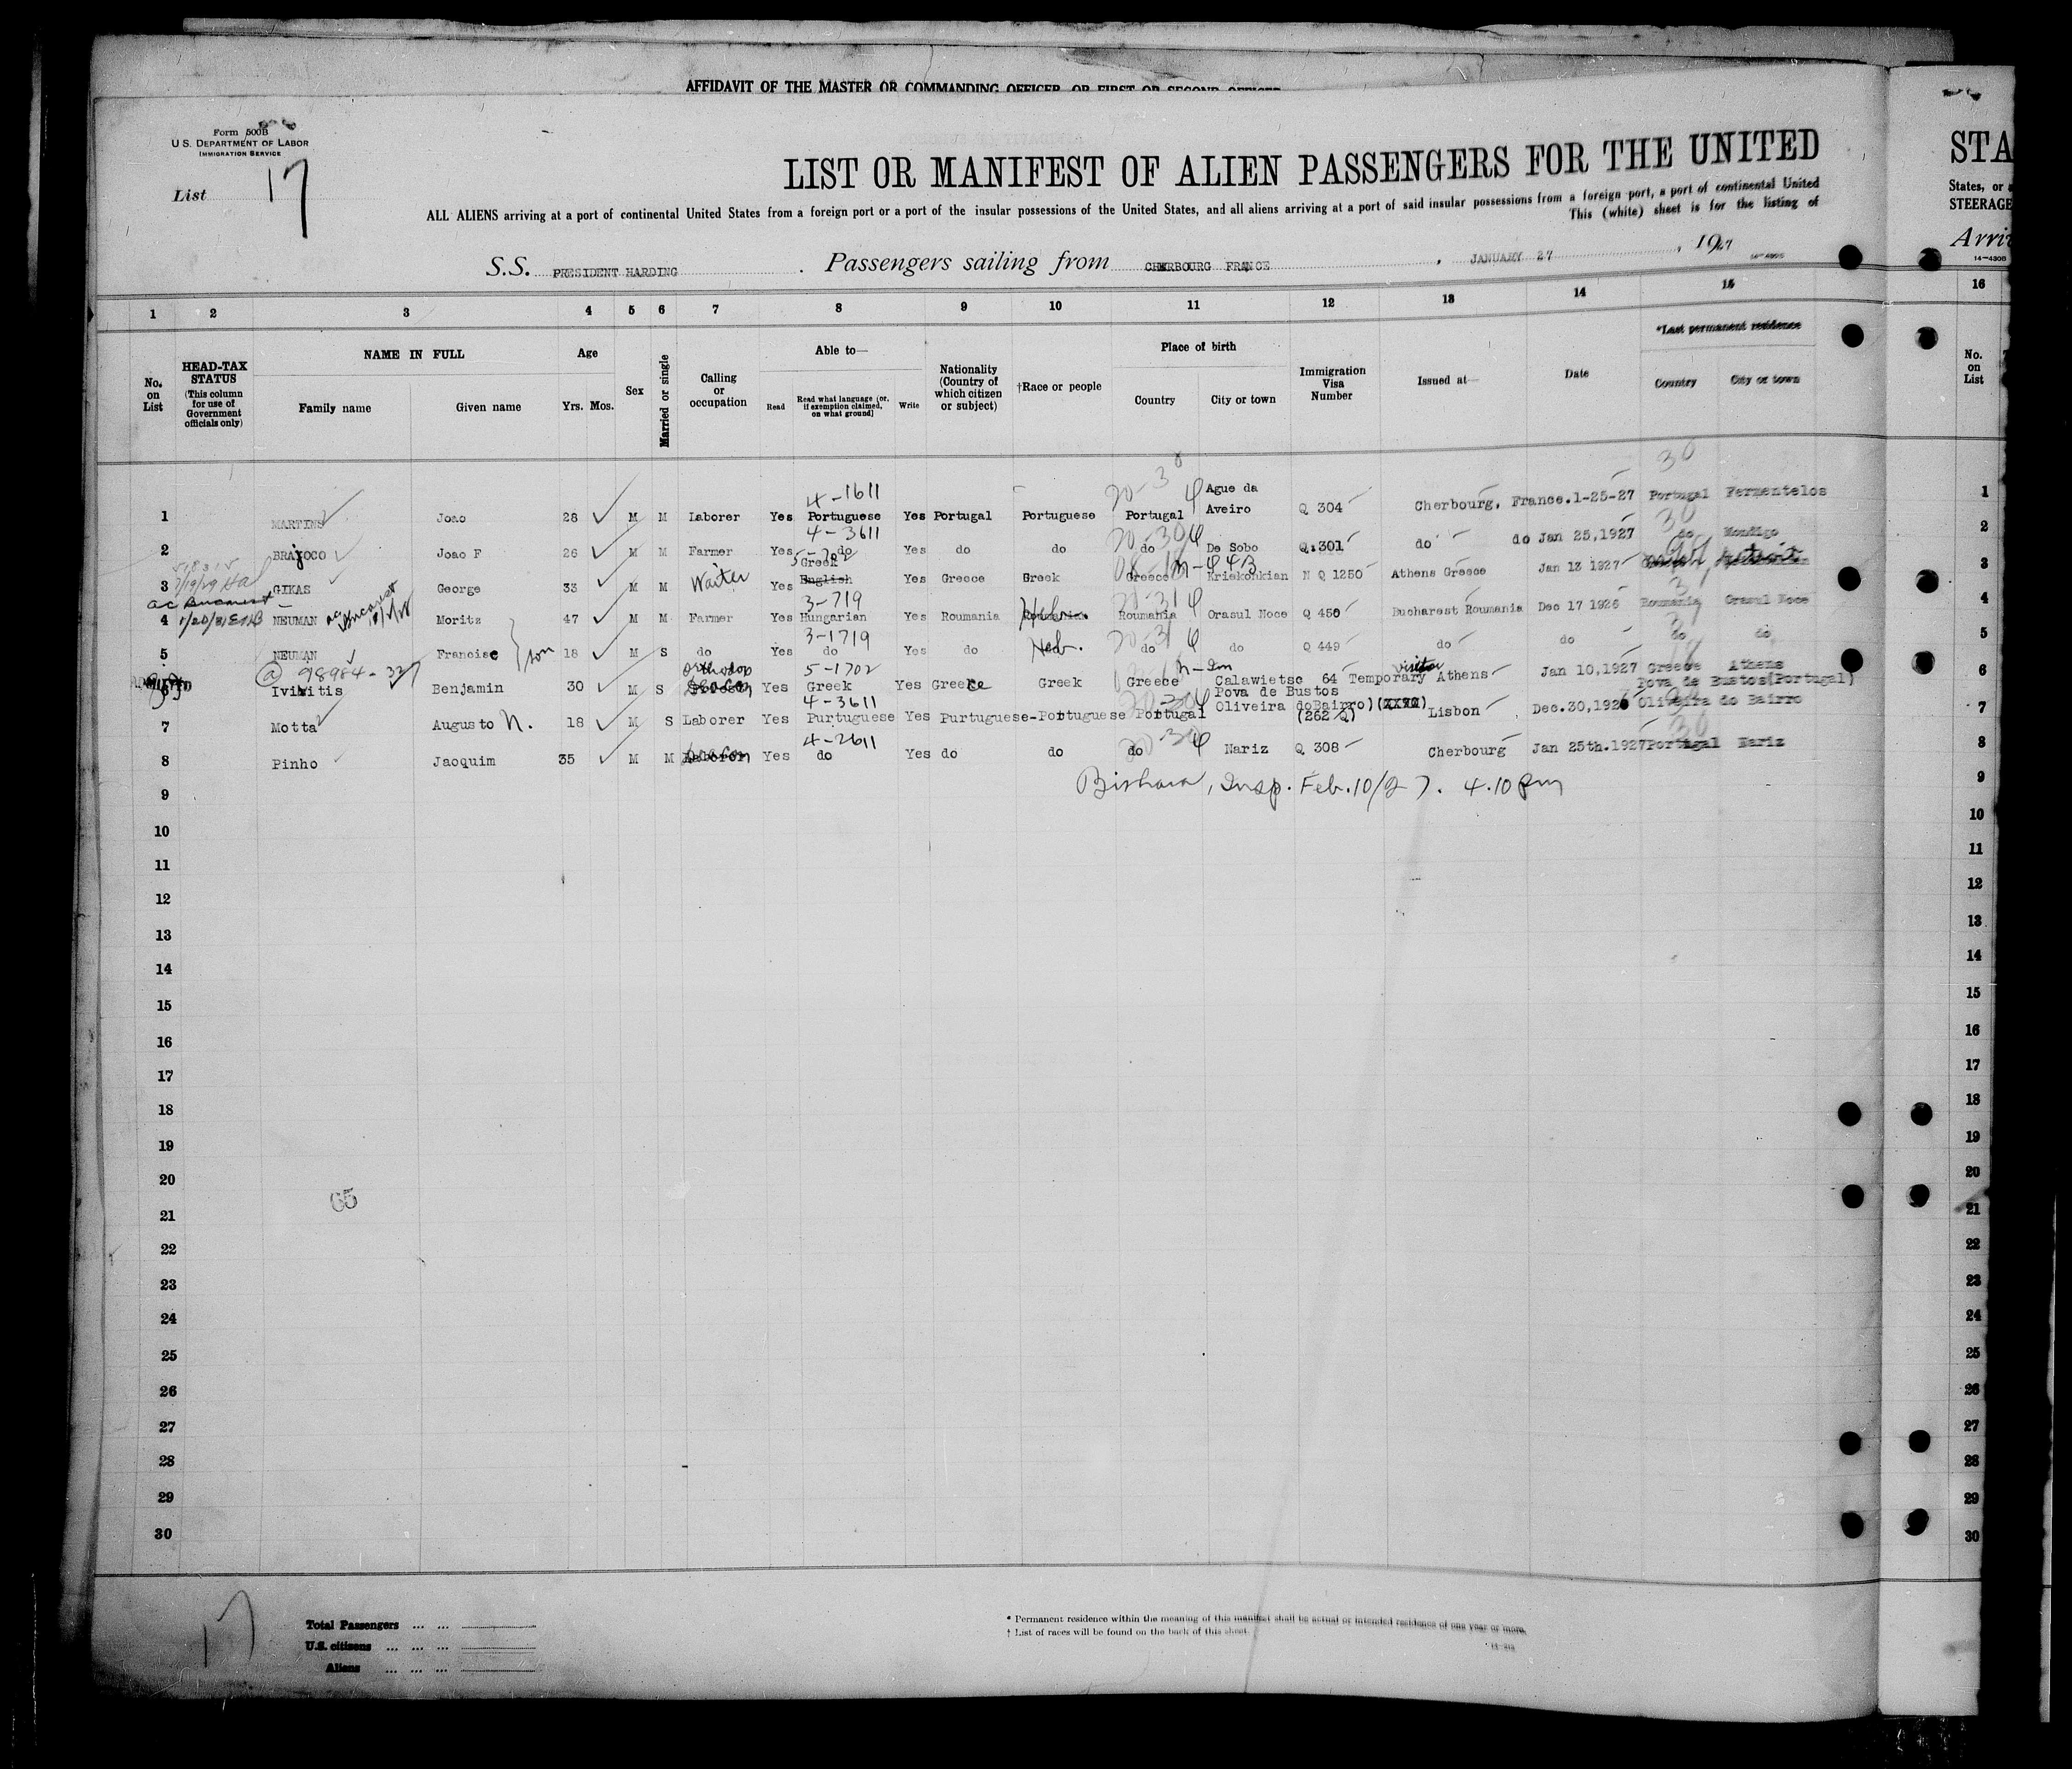 AFFIDAVIT OF THE MASTER OR COMMANDING OFFICER, OR FIRST OR SECOND OFFICER
Form 500B
U.S. DEPARTMENT OF LABOR
IMMIGRATION SERVICE
List 17
LIST OR MANIFEST OF ALIEN PASSENGERS FOR THE UNITED
STA
ALL ALIENS arriving at a port of continental United States from a foreign port or a port of the insular possessions of the United States, and all aliens arriving at a port of said insular possessions from a foreign port, a port of continental United
States, or a
This (white) sheet is for the listing of
STEERAGE
S.S. PRESIDENT HARDING . Passengers sailing from CHERBOURG FRANCE , JANUARY 27 , 1927
Arri
14-4308
1 2 3 4 5 6 7 8 9 10 11 12 13 14 15 16
No. on List
HEAD-TAX STATUS (This column for use of Government officials only)
NAME IN FULL
Family name Given name
Age
Yrs. Mos.
Sex
Married or single
Calling or occupation
Able to—
Read Read what language [or, if exemption claimed, on what ground] Write
Nationality (Country of which citizen or subject)
†Race or people
Place of birth
Country City or town
Immigration Visa Number
Issued at—
Date
*Last permanent residence
Country City or town
No. on List
30
4-1611 20-3 Ague da
1 MARTINS Joao 28 M M Laborer Yes Portuguese Yes Portugal Portuguese Portugal Aveiro Q 304 Cherbourg, France. 1-25-27 Portugal Fermentelos 1
4-3611 20-30 30
2 BRAJOCO Joao F 26 M M Farmer Yes do Yes do do do De Sobo Q.301 do do Jan 25,1927 do Mondigo 2
7/19/29 5-702 Greek
3 GIKAS George 33 M M Waiter Yes English Yes Greece Greek Greece Kriekoukian N Q 1250 Athens Greece Jan 13 1927 3
3-719 20-31
4 1/20/31 NEUMAN Moritz 47 M M Farmer Yes Hungarian Yes Roumania Heb. Roumanian Roumania Orasul Noce Q 450 Bucharest Roumania Dec 17 1926 Roumania Orasul Noce 4
3-1719 20-31
5 NEUMAN Francisc son 18 M S do Yes do Yes do Heb. do do Q 449 do do do do 5
98984-327 5-1702 visitor
6 Ivititis Benjamin 30 M S Yes Greek Yes Greece Greek Greece Calawietsc 64 Temporary Athens Jan 10,1927 Greece Athens 6
4-3611 Pova de Bustos Pova de Bustos(Portugal)
7 Motta Augusto N. 18 M S Laborer Yes Purtuguese Yes Purtuguese-Portuguese Portugal Oliveira doBairro) (262 Q) Lisbon Dec.30,1926 Oliveira do Bairro 7
4-2611 30
8 Pinho Jaoquim 35 M M Laboron Yes do Yes do do do Nariz Q 308 Cherbourg Jan 25th.1927 Portugal Nariz 8
9 Bishara, Insp. Feb. 10/27. 4.10 pm 9
10 10
11 11
12 12
13 13
14 14
15 15
16 16
17 17
18 18
19 19
20 20
65
21 21
22 22
23 23
24 24
25 25
26 26
27 27
28 28
29 29
30 30
17
Total Passengers ... ...
U.S. citizens ... ... ...
Aliens ... ... ...
* Permanent residence within the meaning of this manifest shall be actual or intended residence of one year or more.
† List of races will be found on the back of this sheet.